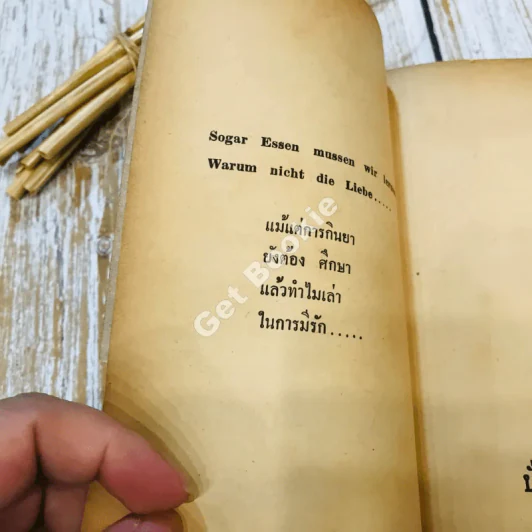 Sogar Essen mussen wir
Warum nicht die Liebe.....
แม้แต่การกินยา
ยังต้อง ศึกษา
แล้วทำไมเล่า
ในการมีรัก.....
Get Bookie